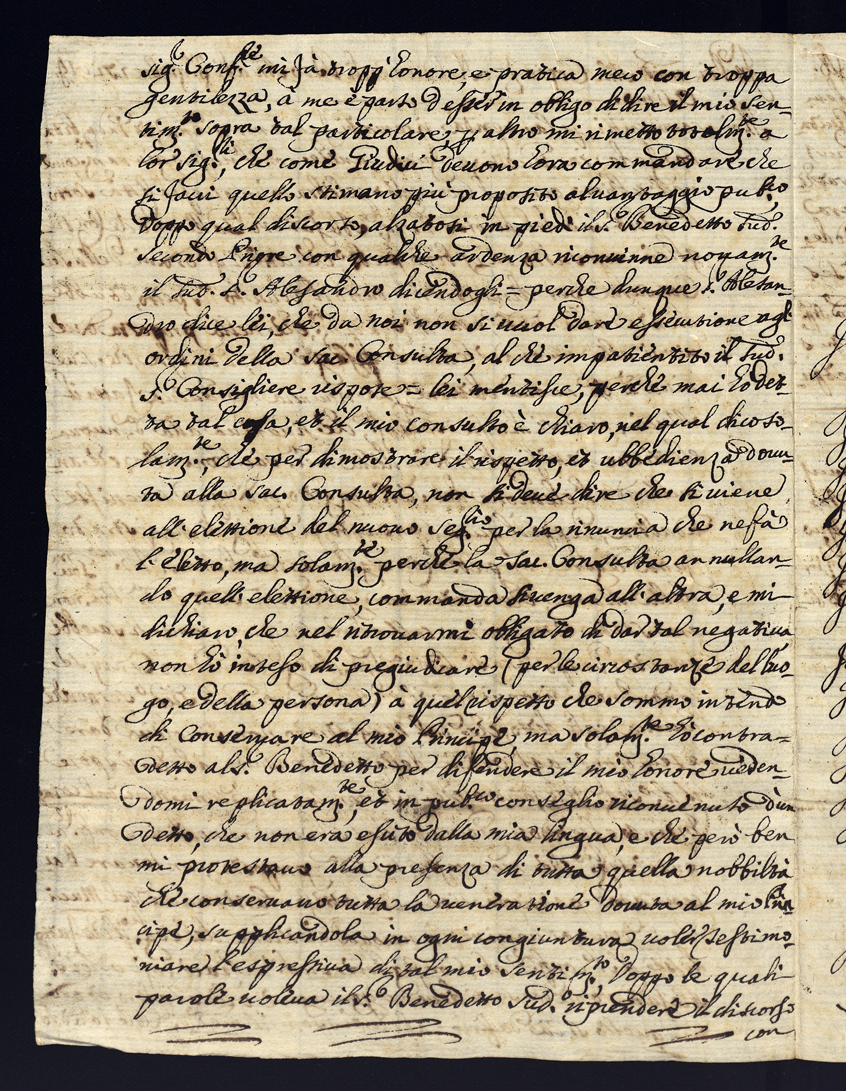 sig.r Conf.re mi fà tropp'honore, e pratica meco con troppa
gentilezza, à me è parso d'esser in obligo di dire il mio sen-
tim.to sopra tal particolare, p altro mi rimetto totalm.te a
lor sig.ri, che come Giudici devono hora commandare che
si facci quello stimano più proposito al vantaggio pub.co,
Doppo qual discorso, alzatosi in piedi il s.r Benedetto Sud.o
secondo Priore con qualche ardenza riconvinne novam.te
il Sud.o s.r Alesandro dicendogli = perche dunque s.r Alesan-
dro dice lei, che da noi non si vuol dare essecutione agl'
ordini della Sac. Consulta, al che impatientito il Sud.o
s.r Consigliere rispose = lei mentisce, perche mai hò det-
ta tal cosa, et il mio consulto è chiaro, nel qual dico so-
lam.te, che per dimostrare il rispetto, et ubbedienza dovu-
ta alla Sac. Consulta, non si deve dire che si viene
all'elettione del nuovo Seg.rio per la rinuncia che ne fà
l'eletto, ma solam.te perche la Sac. Consulta annullan-
do quell'elettione, commanda si venga all'altra, e mi
dichiaro, che nel ritrovarmi obbligato di dar tal negativa
non hò inteso di pregiudicare (per le circostanze del luo-
go, e della persona) à quel rispetto che sommo intendo
di conservare al mio Principe, ma solam.te hò contra-
detto al s.r Benedetto per difendere il mio honore veden-
domi replicatam.te, et in pub.co conseglio riconvenuto d'un
detto, che non era escito dalla mia lingua, e che però ben
mi protestavo alla presenza di tutta quella nobbiltà
che conservavo tutta la veneratione dovuta al mio Prin-
cipe, supplicandola in ogni congiuntura voler testimo-
niare l'espressiva di tal mio sentim.to, Doppo le quali
parole voleva il s.r Benedetto Sud.o riprendere il discorso
con